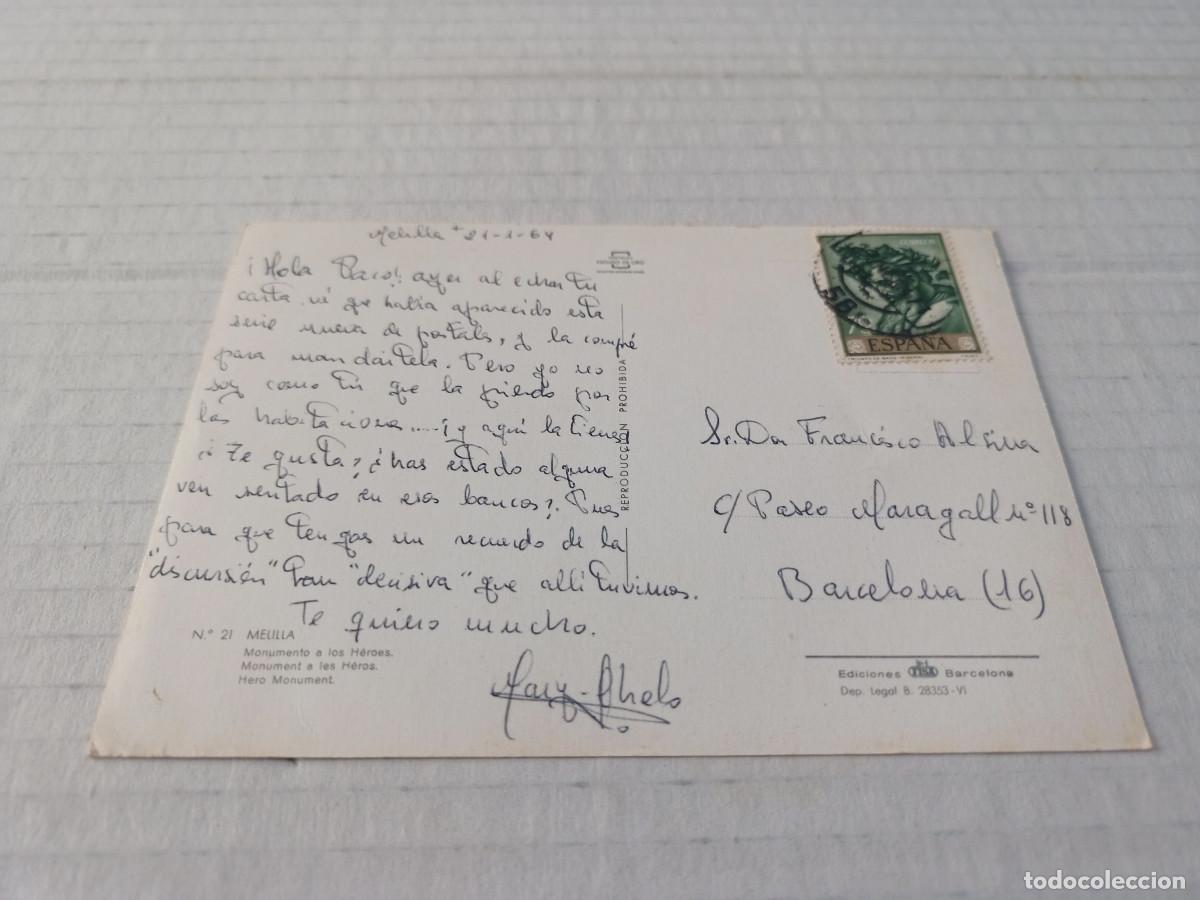 Melilla + 21-1-64
¡Hola Paco! ayer al echar tu
carta vi que había aparecido esta
serie nueva de postales, y la compré
para mandártela. Pero yo no
soy como tú que la pierdo por
las habitaciones.....¡y aquí la tienes!
¿Te gusta? ¿has estado alguna
vez sentado en esos bancos?. Pues
para que tengas un recuerdo de la
"discursión" tan "decisiva" que allí tuvimos.
Te quiero mucho.
Mary-Chelo
N.º 21 MELILLA
Monumento a los Héroes.
Monument a les Héros.
Hero Monument.
ESCUDO DE ORO
REPRODUCCIÓN PROHIBIDA
CORREOS
ESPAÑA
Sr. Don Francisco Alsina
c/ Paseo Maragall nº 118
Barcelona (16)
Ediciones FISA Barcelona
Dep. Legal B. 28353-VI
todocoleccion